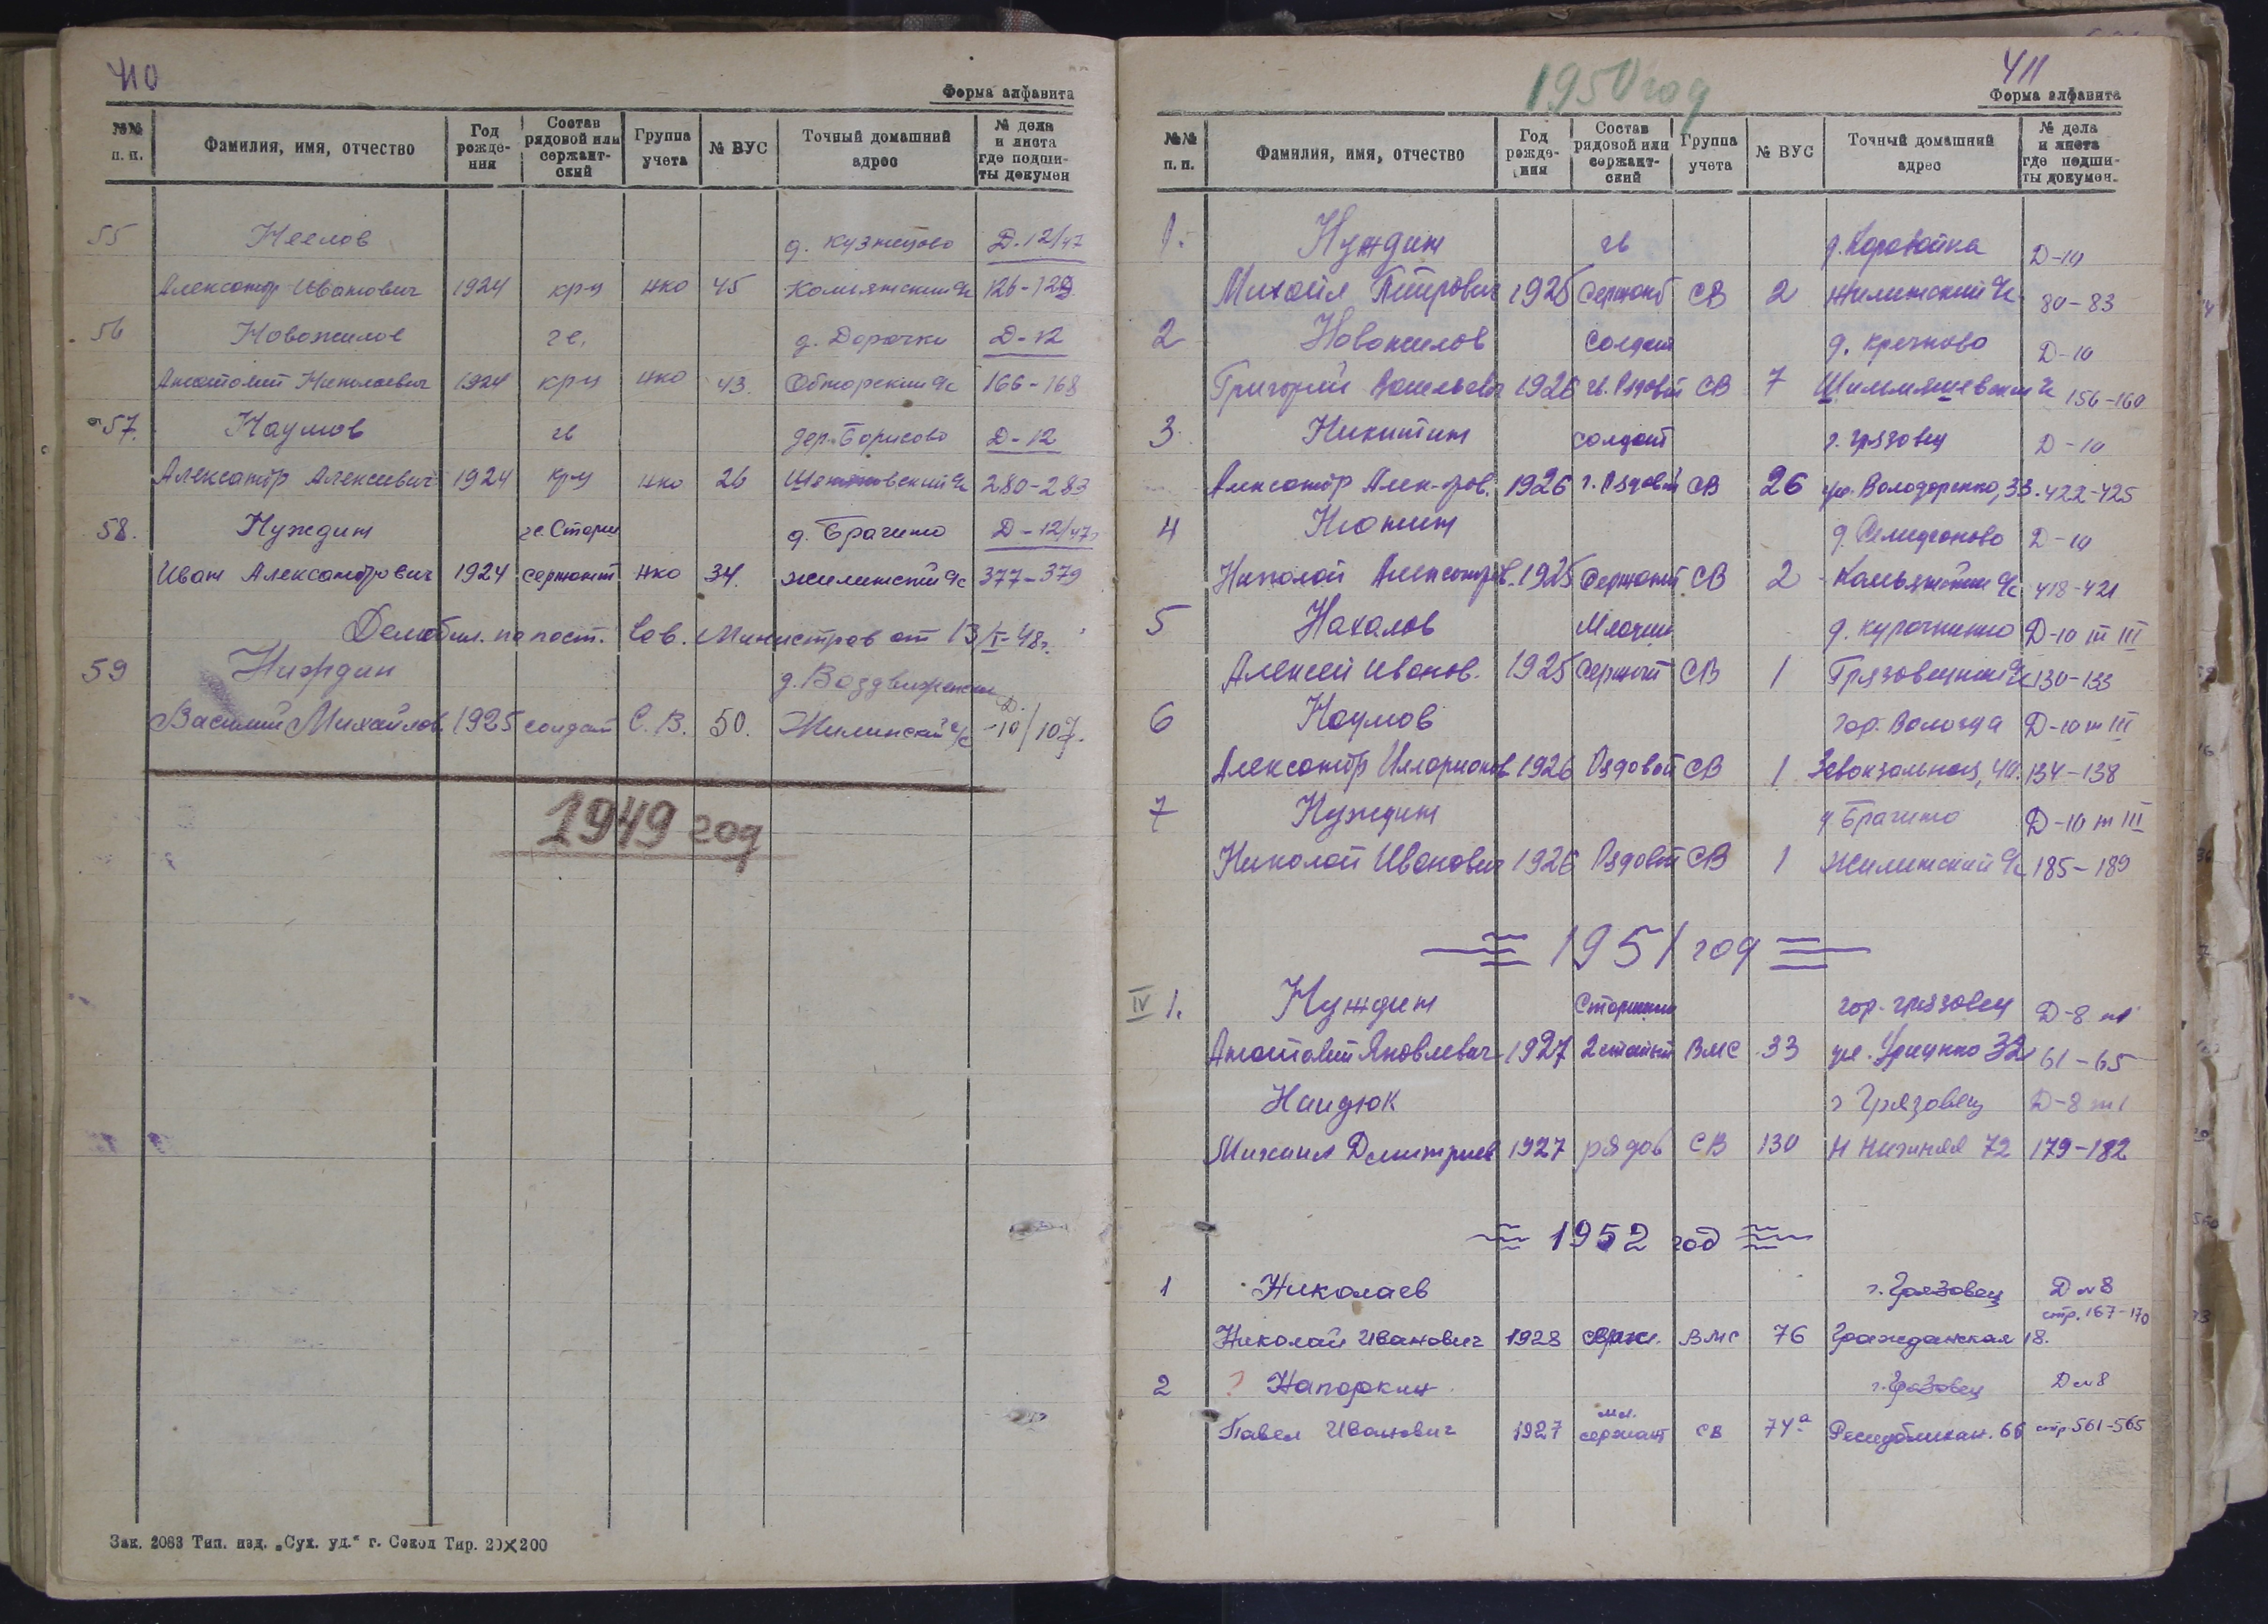 410
Форма алфавита
№№ п. п. Фамилия, имя, отчество Год рожде-ния Состав рядовой или сержант-ский Группа учета № ВУС Точный домашний адрес № дела и листа где подши-ты докумен
55 Неелов д. Кузнецово Д-12/47
Александр Иванович 1924 кр-ц нко 45 126-129
56 Новожилов гв. д. Дорочки Д-12
Анатолий Николаевич 1924 кр-ц нко 43 Обнорский с/с 166-168
57. Наумов гв дер. Борисово Д-12
Александр Алексеевич 1924 кр-ц нко 26 280-283
58. Нуждин гв. Старш д. Брагино Д-12/47г
Иван Александрович 1924 сержант нко 34. Жилинский с/с 377-379
Демобил. по пост. Сов. Министров от 13/I-48г.
59 Нуждин д. Воздвиженье Д.
Василий Михайлов. 1925 солдат С.В. 50. Жилинский с/с -10/107.
1949 год
Зак. 2083 Тип. изд. „Сух. уд.“ г. Сокол Тир. 20×200
411
1950 год
Форма алфавита
№№ п. п. Фамилия, имя, отчество Год рожде-ния Состав рядовой или сержант-ский Группа учета № ВУС Точный домашний адрес № дела и листа где подши-ты докумен.
1. Нуждин гв д. Коровайка Д-10
Михаил Петрович 1925 Сержант СВ 2 Жилинский с/с 80-83
2 Новожилов солдат д. Кречково Д-10
Григорий Васильевич 1926 гв. Рядовой СВ 7 156-160
3 Никитин солдат г. Грязовец Д-10
Александр Алек-ров. 1926 г. Рядовой СВ 26 ул. Володарского, 33. 422-425
4 Нюнин д. Селифоново Д-10
Николай Александров. 1925 Сержант СВ 2 418-421
5 Нахалов Младший д. Курочкино Д-10 т III
Алексей Иванов. 1925 Сержант СВ 1 Грязовецкий с/с 130-133
6 Наумов гор. Вологда Д-10 т III
Александр Илларионов 1926 Рядовой СВ 1 Завокзальная, 40. 134-138
7 Нуждин д Брагино Д-10 т III
Николай Иванович 1926 Рядовой СВ 1 Жилинский с/с 185-189
1951 год
IV 1. Нуждин Старшина гор. Грязовец Д-8 т1
Анатолий Яковлевич 1927 2 статьи ВМС 33 ул. Урицкого 32 61-65
Наидюк г Грязовец Д-8 т1
Михаил Дмитриев 1927 рядов СВ 130 Н Нижняя 72 179-182
1952 год
1 Николаев г. Грязовец Д №8
стр. 167-170
Николай Иванович 1928 серж. ВМС 76 Гражданская 18.
2 ? Напоркин г. Грязовец Д №8
Павел Иванович 1927 мл. сержант СВ 74а Республикан. 66 стр. 561-565